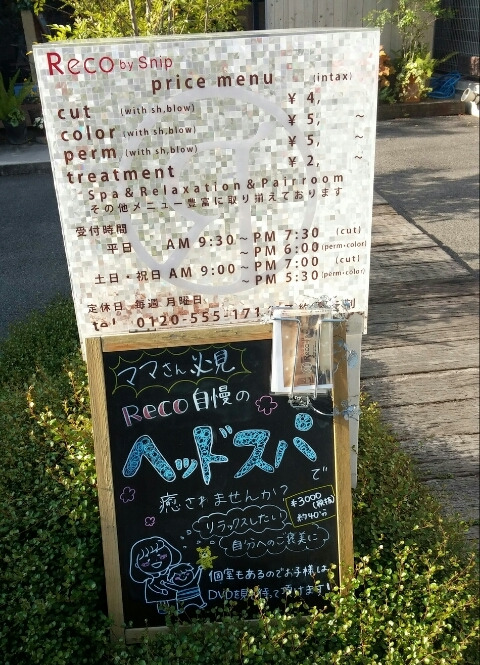 Reco by Snip
price menu (intax)
cut (with sh,blow) ¥ 4,
color (with sh,blow) ¥ 5, ~
perm (with sh,blow) ¥ 5,
treatment ¥ 2, ~
Spa&Relaxation&Pairroom
その他メニュー豊富に取り揃えております
受付時間
平日 AM 9:30 ~ PM 7:30 (cut)
~ PM 6:00 (perm・color)
土日・祝日 AM 9:00 ~ PM 7:00 (cut)
~ PM 5:30 (perm・color)
定休日 毎週 月曜日
tel 0120-555-171
ママさん必見
Reco自慢の
ヘッドスパで
癒されませんか?
¥3000
(税抜)
約40分
リラックスしたい
自分へのご褒美に
個室もあるのでお子様は
DVDを